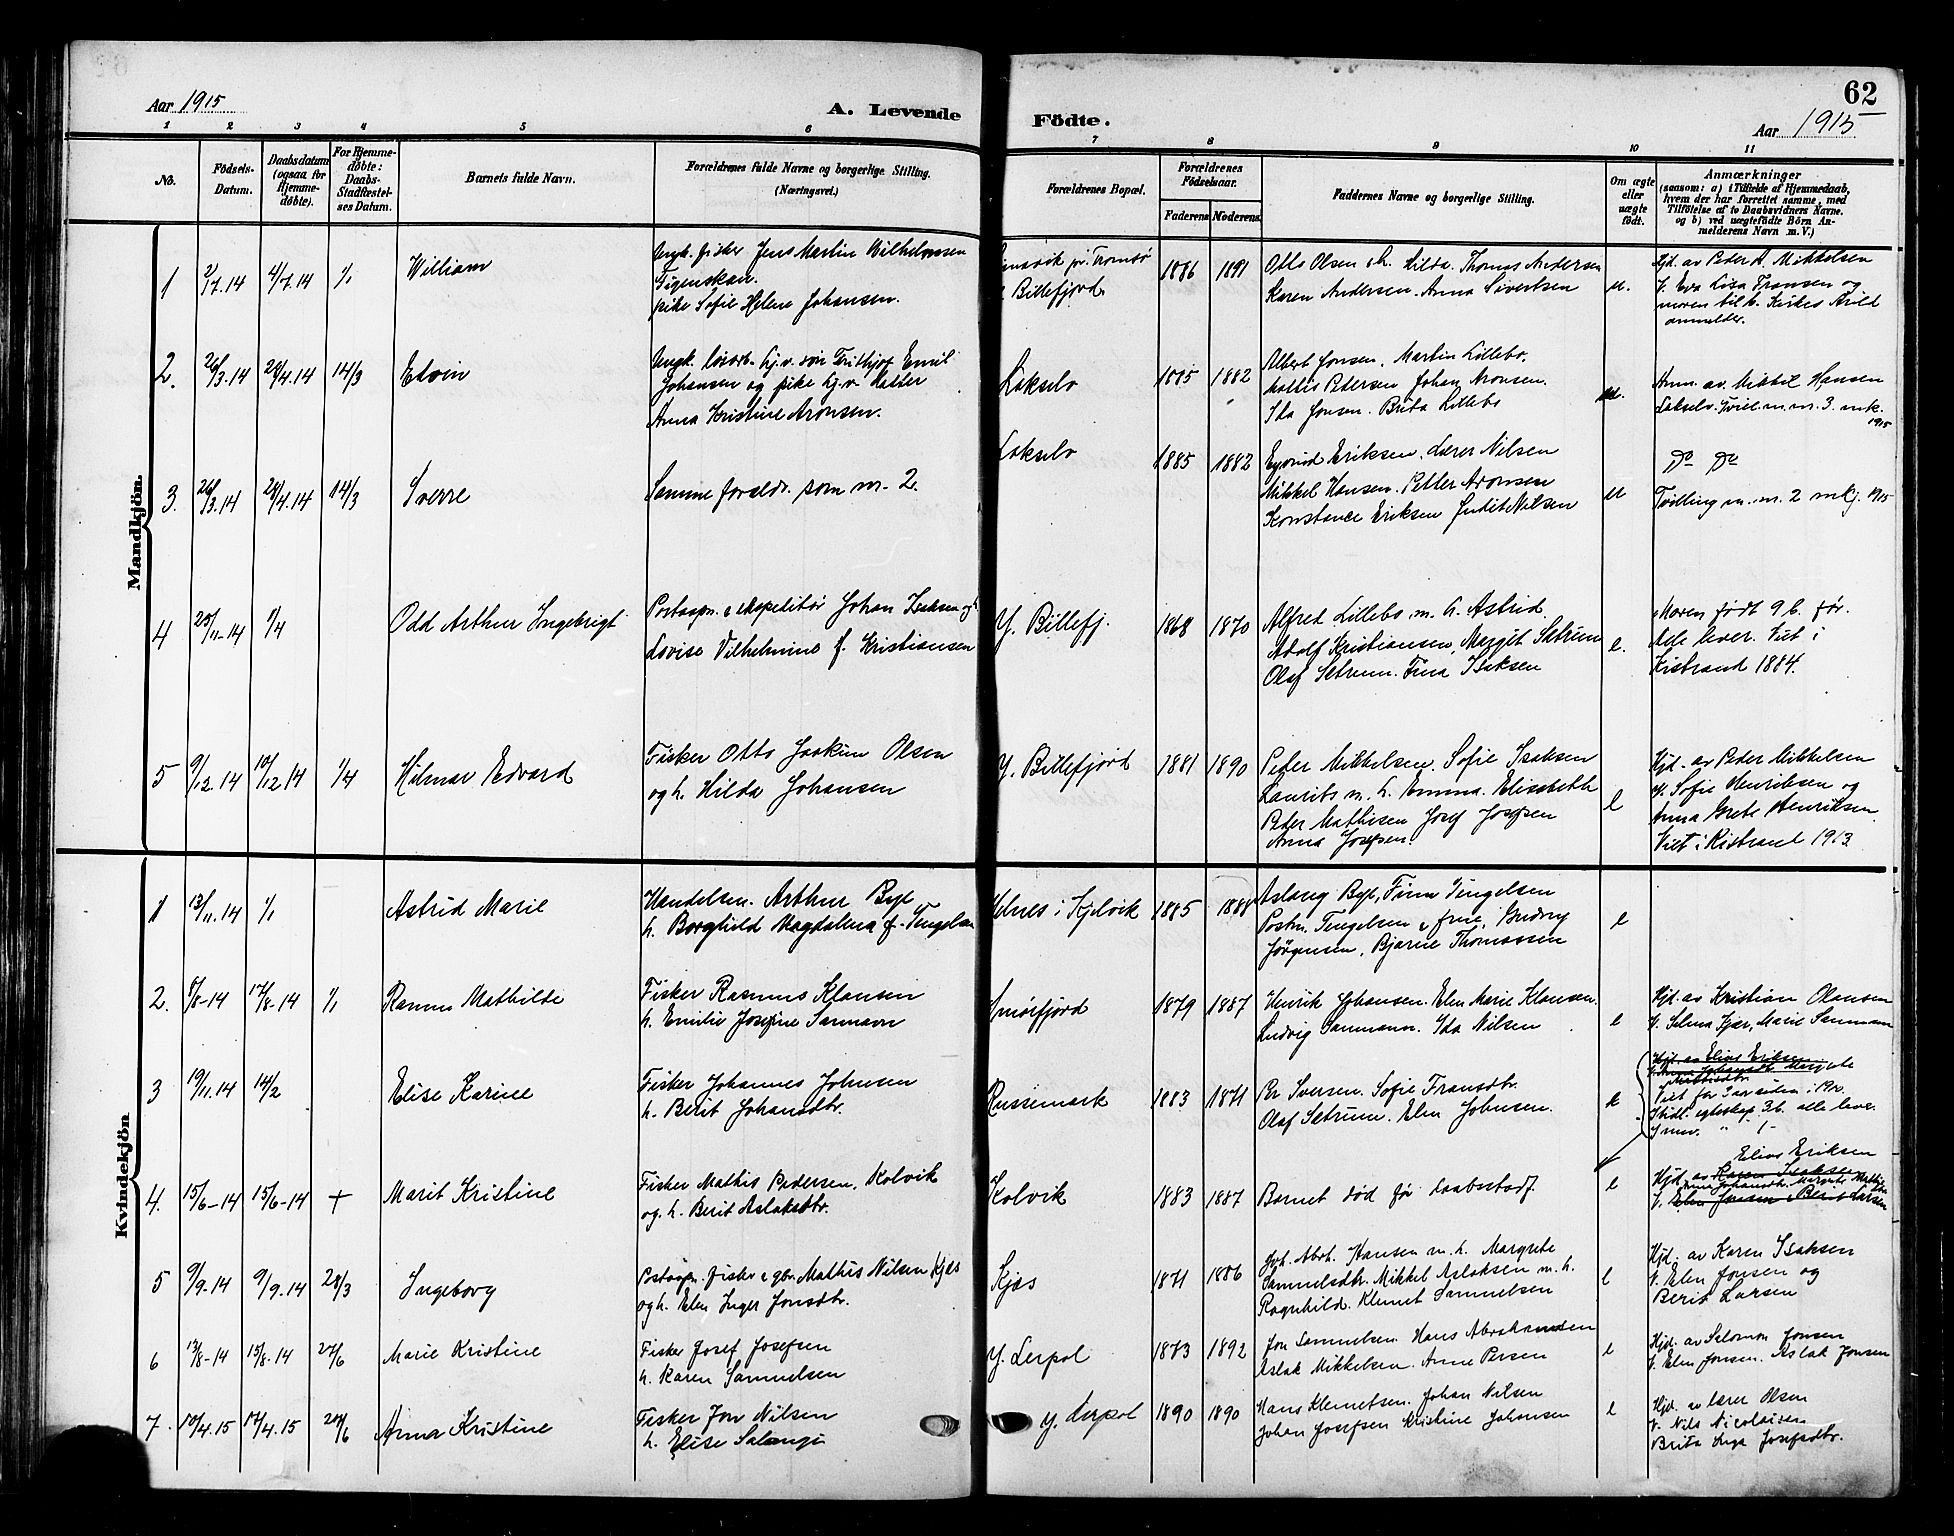 Aar 1915
A. Levende
Födte.
62
Aar 1915
1 2 3 4 5 6 7 8 9 10 11
No.
Födsels-
Datum.
Daabsdatum
(ogsaa for
Hjemme-
døbte).
For Hjemme-
døbte:
Daabs-
Stadfæstel-
ses Datum.
Barnets fulde Navn.
Forældrenes fulde Navne og borgerlige Stilling.
(Næringsvei.)
Forældrenes Bopæl.
Forældrenes
Födselsaar.
Faderens
Moderens
Faddernes Navne og borgerlige Stilling.
Om ægte
eller
uægte
født.
Anmærkninger
(saasom: a) i Tilfælde af Hjemmedaab,
hvem der har forrettet samme, med
Tilföielse af to Daabsvidners Navne.
og b) ved uægtefødte Börn An-
melderens Navn m. V.)
Mandkjön.
1 2/7.14 4/7.14 1/1 William
Ungk. fisker Jens Martin Vilhelmsen
pike Sofie Helene Johansen.
pr. Tromsö
Billefjord
1886 1891
Otto Olsen Hilda. Thomas Andersen
Karen Andersen. Anna Sivertsen
u.
Hjd. av Peder A. Mikkelsen
V. Eva Lisa Fransen og
moren
anmelder.
2. 26/3.14 28/4.14 14/3 Edvin
Ungk. Emil
Johansen og pike
Anna Kristine Aronsen.
Lakselv
1885 1882
Albert Jonsen. Martin Lillebo.
Petersen Johan Aronsen.
Ida Jonsen. Brita Lillebo
u.
Anm. av Mikkel Hansen
Lakselv. m. n. 3. mk.
1915
3. 26/3.14 28/4.14 14/3 Sverre
Samme foreldr. som nr. 2.
Lakselv
1885 1882
Eyvind Eriksen. Lærer Nilsen
Mikkel Hansen. Petter Aronsen
Konstance Eriksen Judit Nilsen
u
Do Do
Tvilling m. n. 2 mkj. 1915
4 25/11.14 1/4
Odd Arthur Ingebrigt
Postaapn. & ekspeditör Johan Isaksen og
Lovise Vilhelmine f. Kristiansen
Y. Billefj.
1868 1870
Alfred Lillebo m. h. Astrid
Adolf Kristiansen, Margit Setrum
Olaf Setrum. Fina Isaksen
e.
Moren födt 9 b. för.
Alle lever. Viet i
Kistrand 1884.
5 9/12.14 10/12 14 1/4 Hilmar Edvard
Fisker Otto Joakim Olsen
og h. Hilda Johansen
Y. Billefjord
1881 1890
Peder Mikkelsen. Sofie Isaksen
Laurits m. h. Emma. Elisabeth
Peder Mathisen Josef Josefsen
Anna Josefsen.
e
Hjd. av Peder Mikkelsen
V. Sofie Henriksen og
Anna Grete Henriksen
Viet i Kistrand 1913
Kvindekjön
1 13/11.14 1/1 Astrid Marie
Handelsm. Arthur Bye
h. Borghild Magdalena f. Tengelsen
Helnes i Kjelvik
1885 1888
Aslaug Bye, Finn Tengelsen
Postm. Tengelsen & frue, Gudrny
Jörgensen, Bjarne Thomassen
e
2. 8/8-14 17/8-14 1/1 Ranna Mathilde
Fisker Rasmus Klausen
h. Emilie Josefine Sarmann
Smörfjord
1879 1887
Henrik Johansen. Elen Marie Klausen.
Ludvig Sarmann. Ida Nilsen
e
Hjd. av Kristian Olaussen
V. Selma Kjær, Marie Sarmann
3 19/11.14 14/2 Elise Karine
Fisker Johannes Johnsen
h. Berit Johansdtr.
Russemark
1883 1871
Per Sversen. Sofie Fransdtr.
Olaf Setrum. Elen Johnsen.
e
Hjd. av Elias Eriksen
V. Anna Johansdtr. Margrete
Mathisdtr.
Viet for
egteskap. 3 b. alle lever.
4. 15/6-14 15/6-14 + Marit Kristine
Fisker Mathis Pedersen, Kolvik
og h. Berit Aslaksdtr.
Kolvik
1883 1887
Barnet död för daabsstadf.
e
Elias Eriksen
Hjd. av Karen Isaksen
Anna Johansdtr. Margrete Mathisdtr
V. Elen Jonsen & Berit Larsen
5 9/9.14 9/9.14 28/3 Ingeborg
Postaapn. fisker & gbr. Mathis Nilsen Kjæs
og h. Elen Inger Jonsdtr.
Kjæs
1871 1886
Abrh. Hansen m. h. Margrete
Samuelsdtr. Mikkel Aslaksen m. h.
Ragnhild. Klemet Samuelsen
e
Hjd. av Karen Isaksen
V. Elen Jonsen og
Berit Larsen
6 13/8-14 15/8.14 27/6 Marie Kristine
Fisker Josef Josefsen
h. Karen Samuelsen
Y. Lerpol
1873 1892
Jon Samuelsen. Hans Abrahamsen
Aslak Mikkelsen. Anne Persen
e
Hjd. av Salomon Jonsen
V. Elen Jonsen. Aslak Jonsen
7. 10/4.15 12/4.15 27/6 Anna Kristine
Fisker Jon Nilsen
h. Elise Salangi
Y. Lerpol
1890 1890
Hans Klemetsen. Johan Nilsen
Johan Josefsen Kristine Johansen
e
Hjd. av lærer Olsen
V. Nils Nicolaisen
Brita Inga Josefsdtr.